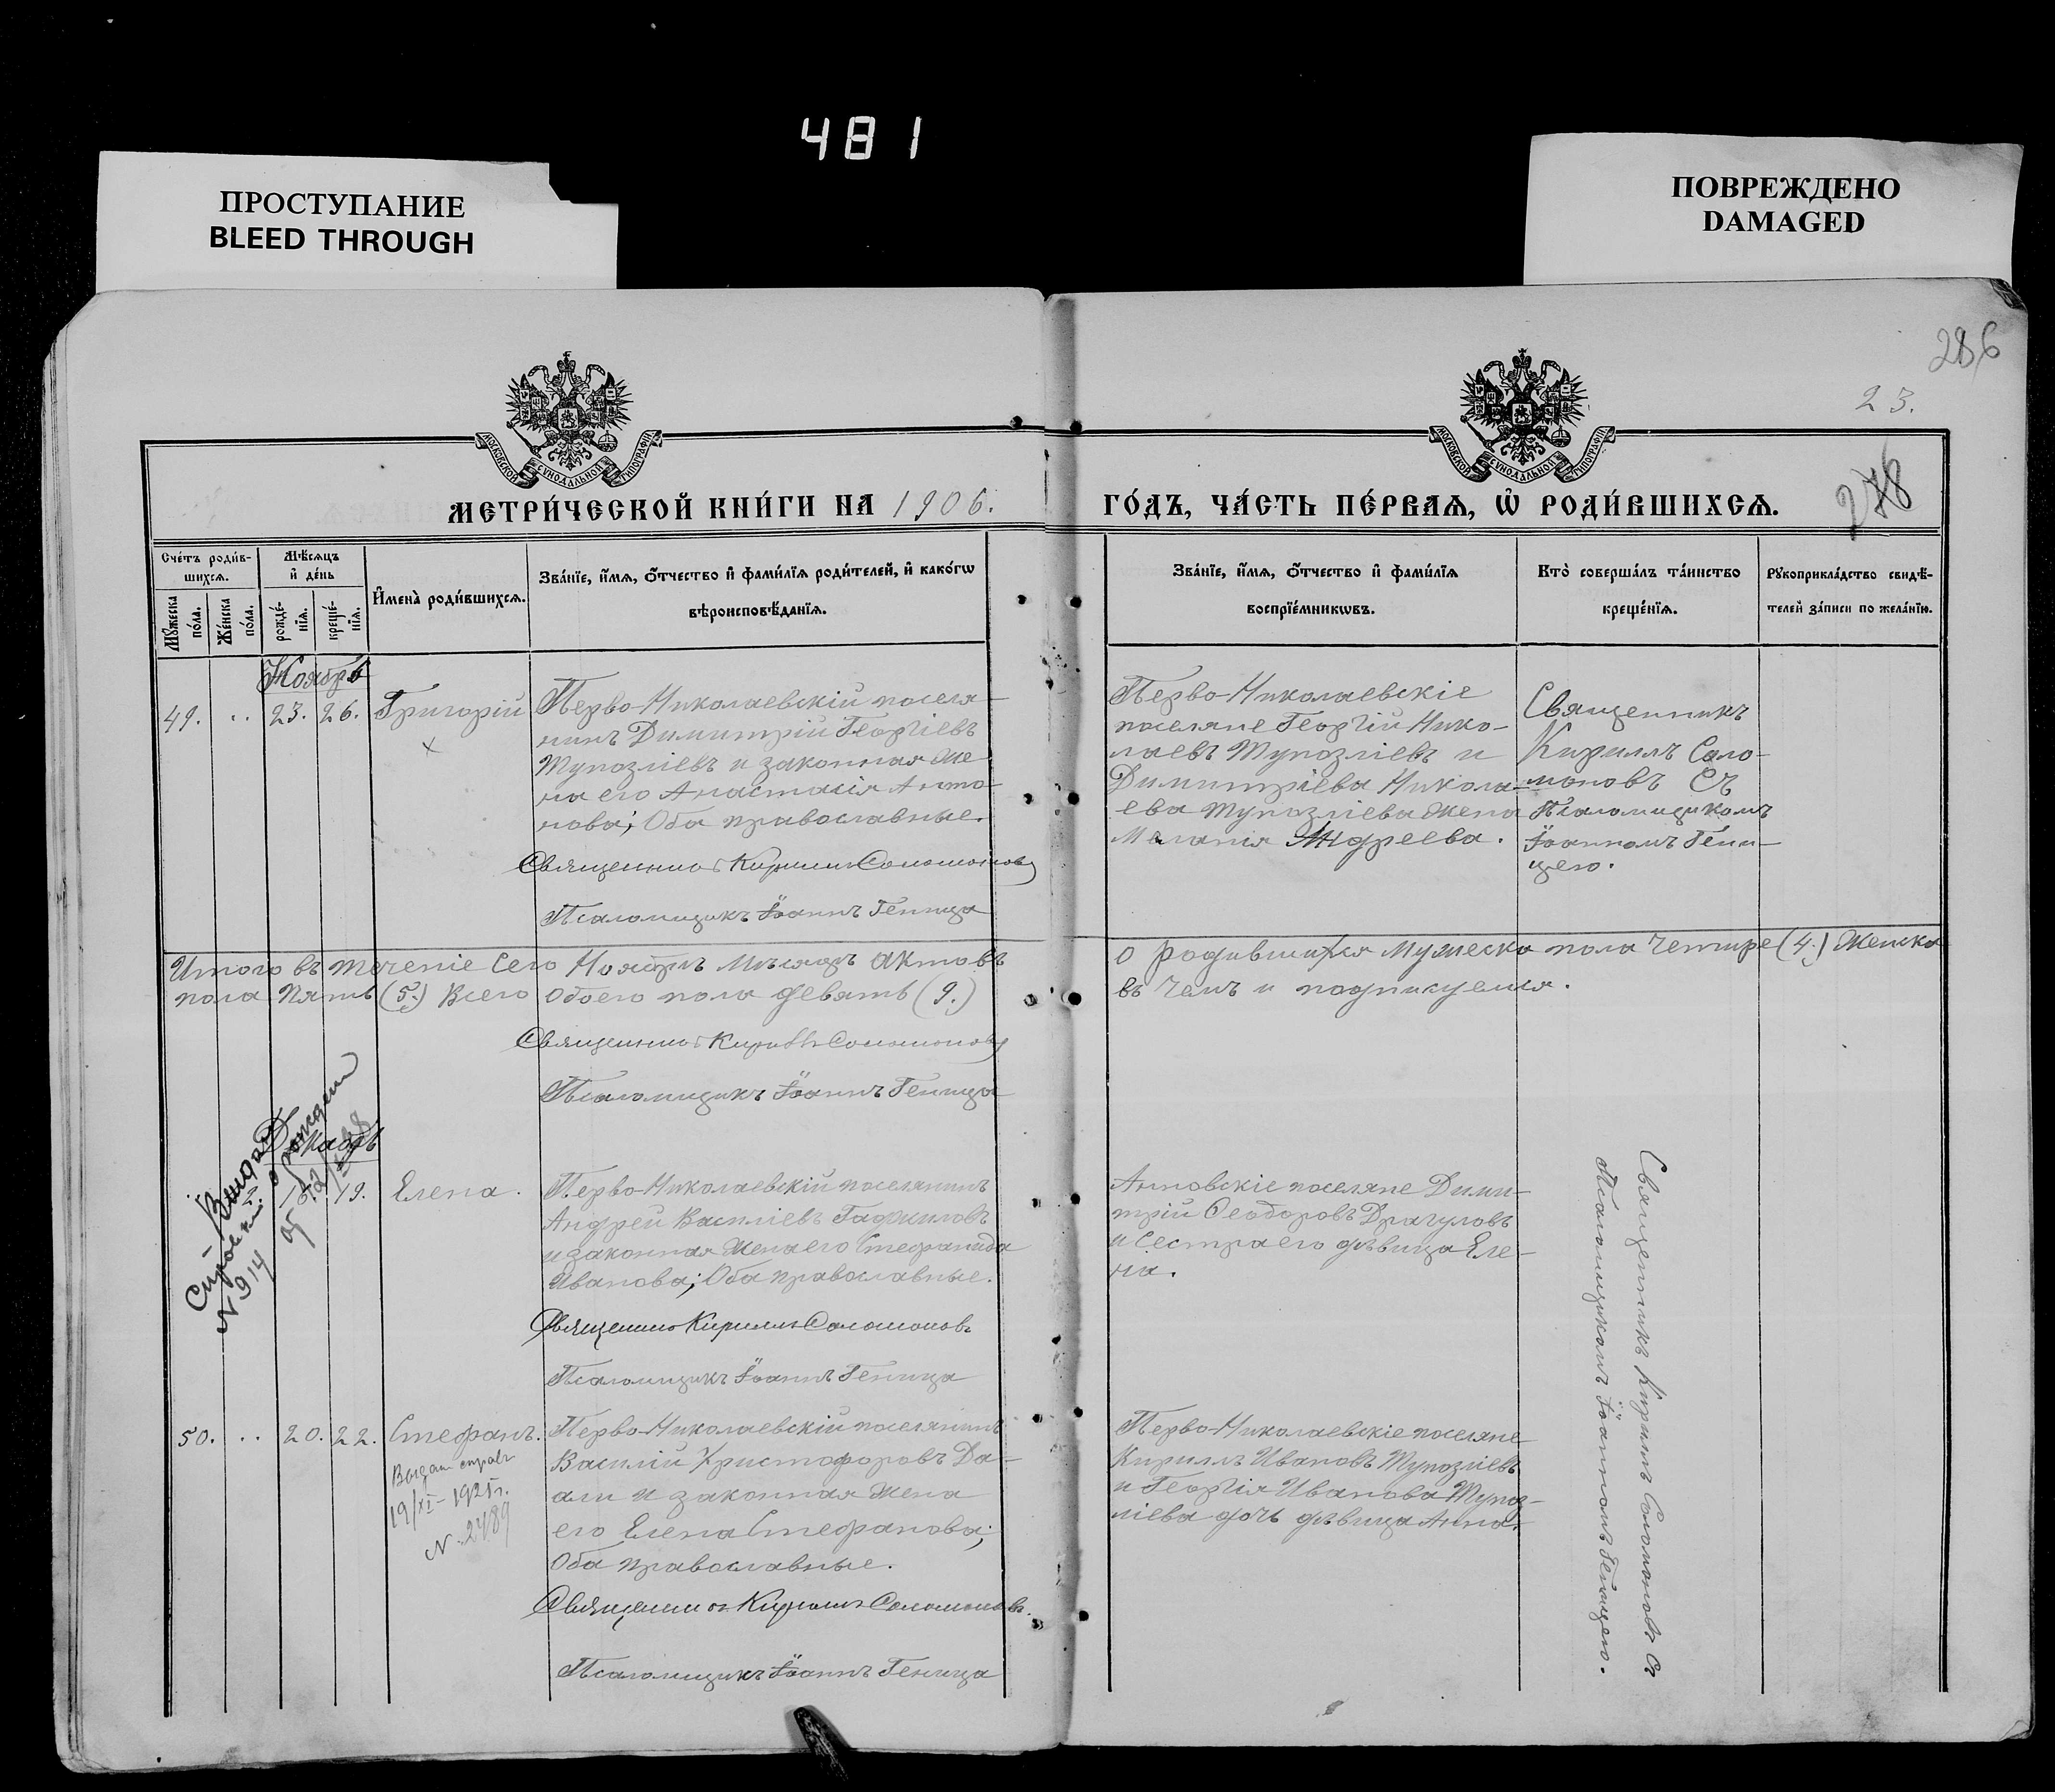 481
ПРОСТУПАНИЕ
BLEED THROUGH
ПОВРЕЖДЕНО
DAMAGED
286
23.
278
МОСКОВСКОЙ СѴНОДАЛЬНОЙ ТИПОГРАФІИ
МОСКОВСКОЙ СѴНОДАЛЬНОЙ ТИПОГРАФІИ
МЕТРИ́ЧЕСКОЙ КНИ́ГИ НА 1906.
ГО́ДЪ, ЧА́СТЬ ПЕ́РВАѦ, Ѡ҆ РОДИ́ВШИХСѦ.
Сче́тъ роди́в-
шихсѧ.
Мѣ́сѧцъ
и҆ де́нь
Мꙋ́жеска по́ла.
Же́нска по́ла.
рожде́-
нїѧ.
креще́-
нїѧ.
И҆мена̀ роди́вшихсѧ.
Зва́нїе, и҆́мѧ, ѻ҆́тчество и҆ фами́лїѧ роди́телей, и҆ како́гѡ
вѣроисповѣ́данїѧ.
Зва́нїе, и҆́мѧ, ѻ҆́тчество и҆ фами́лїѧ
воспрїе́мникѡвъ.
Кто̀ соверша́лъ та́инство
креще́нїѧ.
Рꙋкоприкла́дство свидѣ́-
телей за́писи по жела́нїю.
Ноябрь
49. .. 23. 26. Григорій
Перво-Николаевскій поселя-
нинъ Димитрій Георгіевъ
Тупозліевъ и законная же
на его Анастасія Анто-
нова; Оба православные.
Священникъ Кириллъ Соломоновъ
Псаломщикъ Іоаннъ Геница
Перво-Николаевскіе
поселяне Георгій Нико-
лаевъ Тупозліевъ и
Димитріева Никола-
ева Тупозліева жена
Маланія Андреева.
Священникъ
Кириллъ Соло-
моновъ Съ
Псаломщикомъ
Іоанномъ Гени-
цею.
Итого въ теченіе Сего Ноябрь мѣсяцъ актовъ о родившихся Мужеска пола Четыре (4.) Женска
пола Пять (5.) Всего Обоего пола девять (9.) въ Чемъ и подписуемся.
Священникъ Кириллъ Соломоновъ
Псаломщикъ Іоаннъ Геница
Декабрь
19. Елена.
N 914
Перво-Николаевскій поселянинъ
Андрей Василіевъ Гаджиловъ
и законная жена его Стефанида
Иванова; Оба православные.
Священникъ Кириллъ Соломоновъ
Псаломщикъ Іоаннъ Геница
Анновскіе поселяне Дими-
трій Ѳеодоровъ Драгуловъ
и Сестра его дѣвица Еле-
на.
Священникъ Кириллъ Соломоновъ Съ
Псаломщикомъ Іоанномъ Геницею.
50. .. 20. 22. Стефанъ.
Выдан справк
19/XI-1925г.
N-2489
Перво-Николаевскій поселянинъ
Василій Христофоровъ Да-
али и законная жена
его Елена Стефанова;
Оба православные.
Священникъ Кириллъ Соломоновъ.
Псаломщикъ Іоаннъ Геница
Перво-Николаевскіе поселяне
Кириллъ Ивановъ Тупозліевъ
и Георгія Иванова Тупоз-
ліева дочь дѣвица Анна.